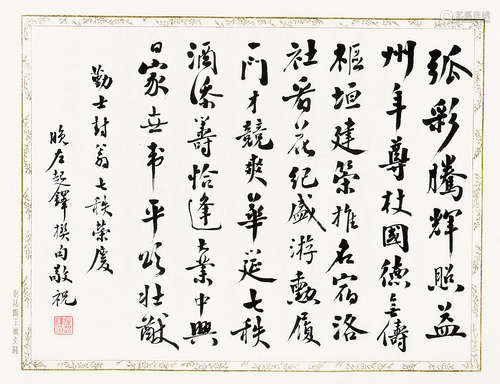 弧彩騰輝照益
州年尊杖國德无儔
樞垣建策推名宿洛
社香花紀盛游勳履
一門才競爽華筵七秩
酒添籌恰逢大業中興
日家世韋平頌壯猷
勤士封翁七秩榮慶
晚左起鐸撰句敬祝